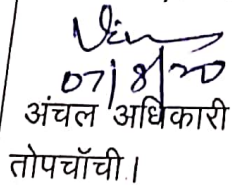 07/8/20
अंचल अधिकारी
तोपचाँची।